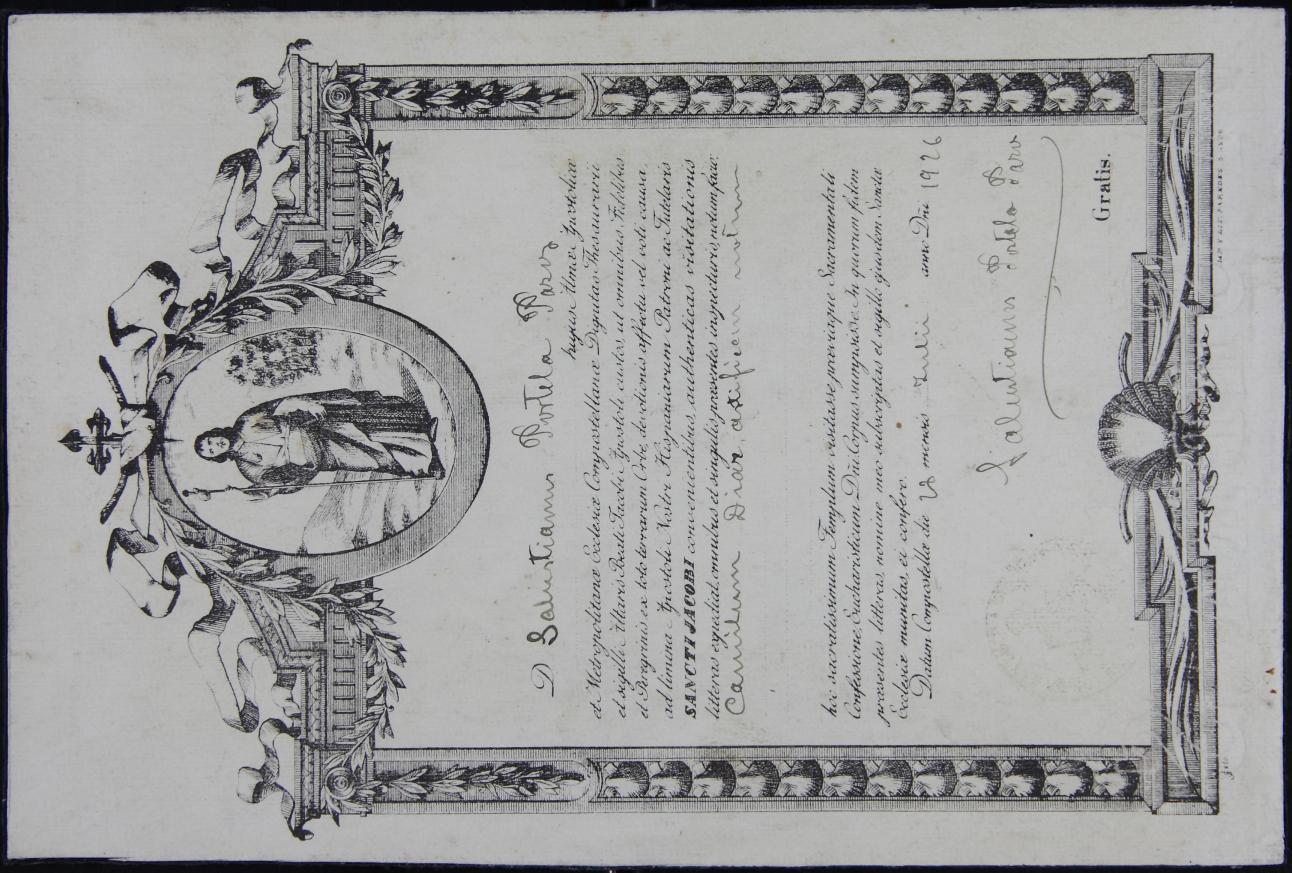 D Salustianus Portela Pazos
hujus Almæ Apostolicæ
et Metropolitanæ Ecclesiæ Compostellanæ Dignitas Thesaurarii
et sigilli Altaris Beati Jacobi Apostoli custos, ut omnibus Fidelibus
et Peregrinis ex toto terrarum Orbe, devotionis affectu vel voti causa,
ad limina Apostoli Nostri Hispaniarum Patroni ac Tutelaris
SANCTI JACOBI convenientibus, authenticas visitationis
litteras expediat, omnibus et singulis præsentes inspecturis, notum facit:
Camilum Diaz
hoc sacratissimum Templum visitasse, præviaque Sacramentali
Confessione, Eucharisticum Dñi. Corpus sumpsisse. In quorum fidem
præsentes litteras, nomine meo subscriptas et sigillo ejusdem Sanctæ
Ecclesiæ munitas, ei confero.
Datum Compostellæ die 28 mensis Julii anno Dñi 1926
Salustianus Portela Pazos
Gratis.